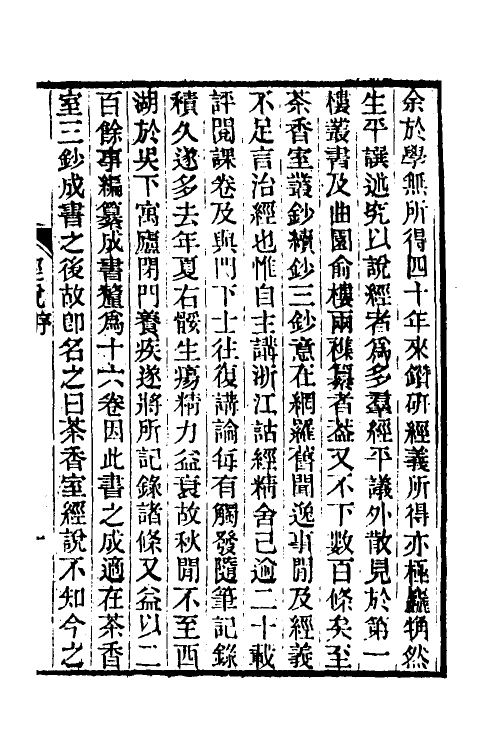 余於學無所得四十年來鑽研經義所得亦極麤觕然
生平譔述究以說經者爲多羣經平議外散見於第一
樓叢書及曲園俞樓兩襍纂者葢又不下數百條矣至
茶香室叢鈔續鈔三鈔意在網羅舊聞逸事閒及經義
不足言治經也惟自主講浙江詁經精舍已逾二十載
評閱課卷及與門下士往復講論每有觸發隨筆記錄
積久遂多去年夏右骽生瘍精力益衰故秋閒不至西
湖於吳下寓廬閉門養疾遂將所記錄諸條又益以二
百餘事編纂成書釐爲十六卷因此書之成適在茶香
室三鈔成書之後故卽名之曰茶香室經說不知今之
經說序
一